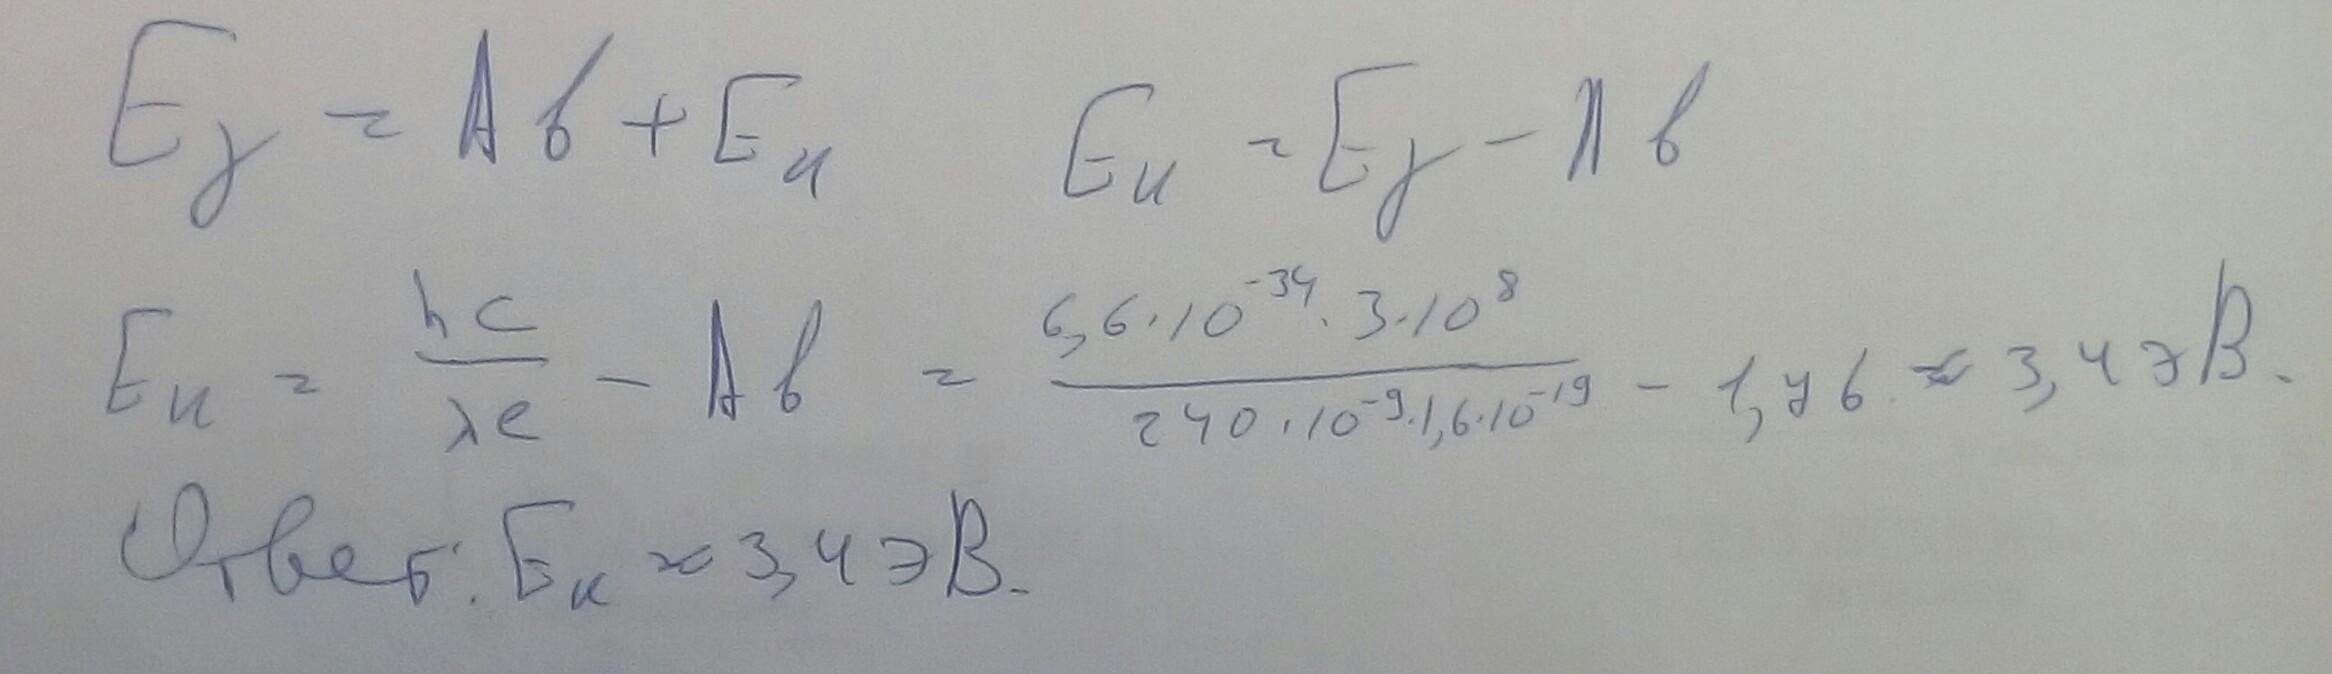 Eγ = Aв + Eк Eк = Eγ - Aв
Eк = hc/λe - Aв = 6,6·10⁻³⁴·3·10⁸/240·10⁻⁹·1,6·10⁻¹⁹ - 1,76 ≈ 3,4 эВ.
Ответ: Eк ≈ 3,4 эВ.